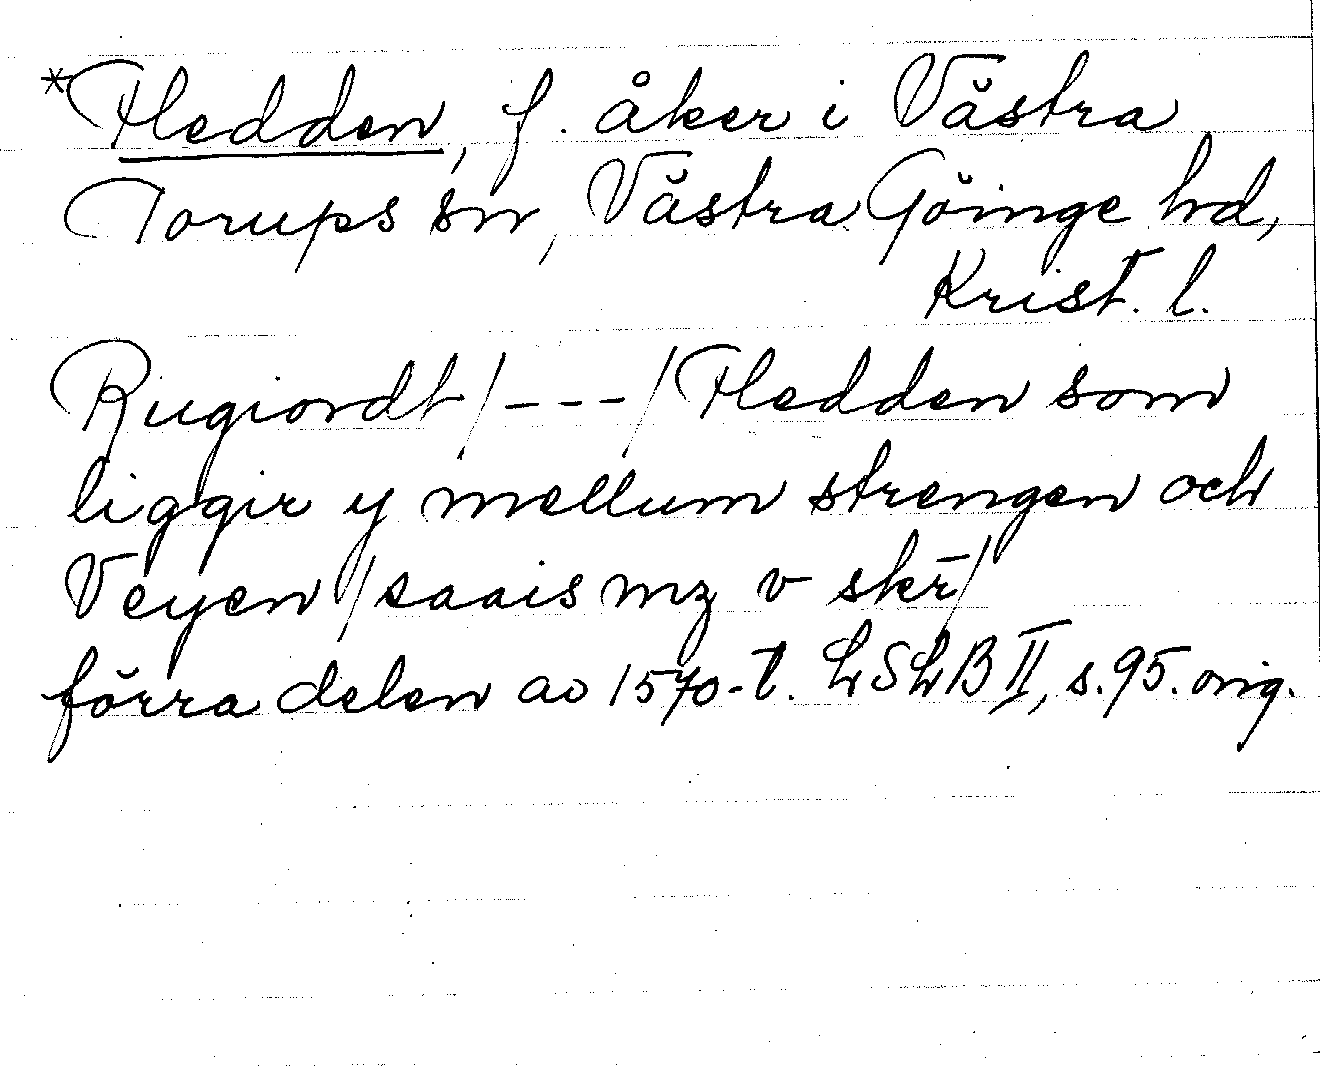 *Fledden, f. åker i Västra
Torups sn, Västra Göinge hd,
Krist. l.
Rugiordt/---/Fledden som
liggir y mellum strengen och
Veyen/saais mz v skr̄/
förra delen av 1570-t. LSLB II, s. 95. orig.